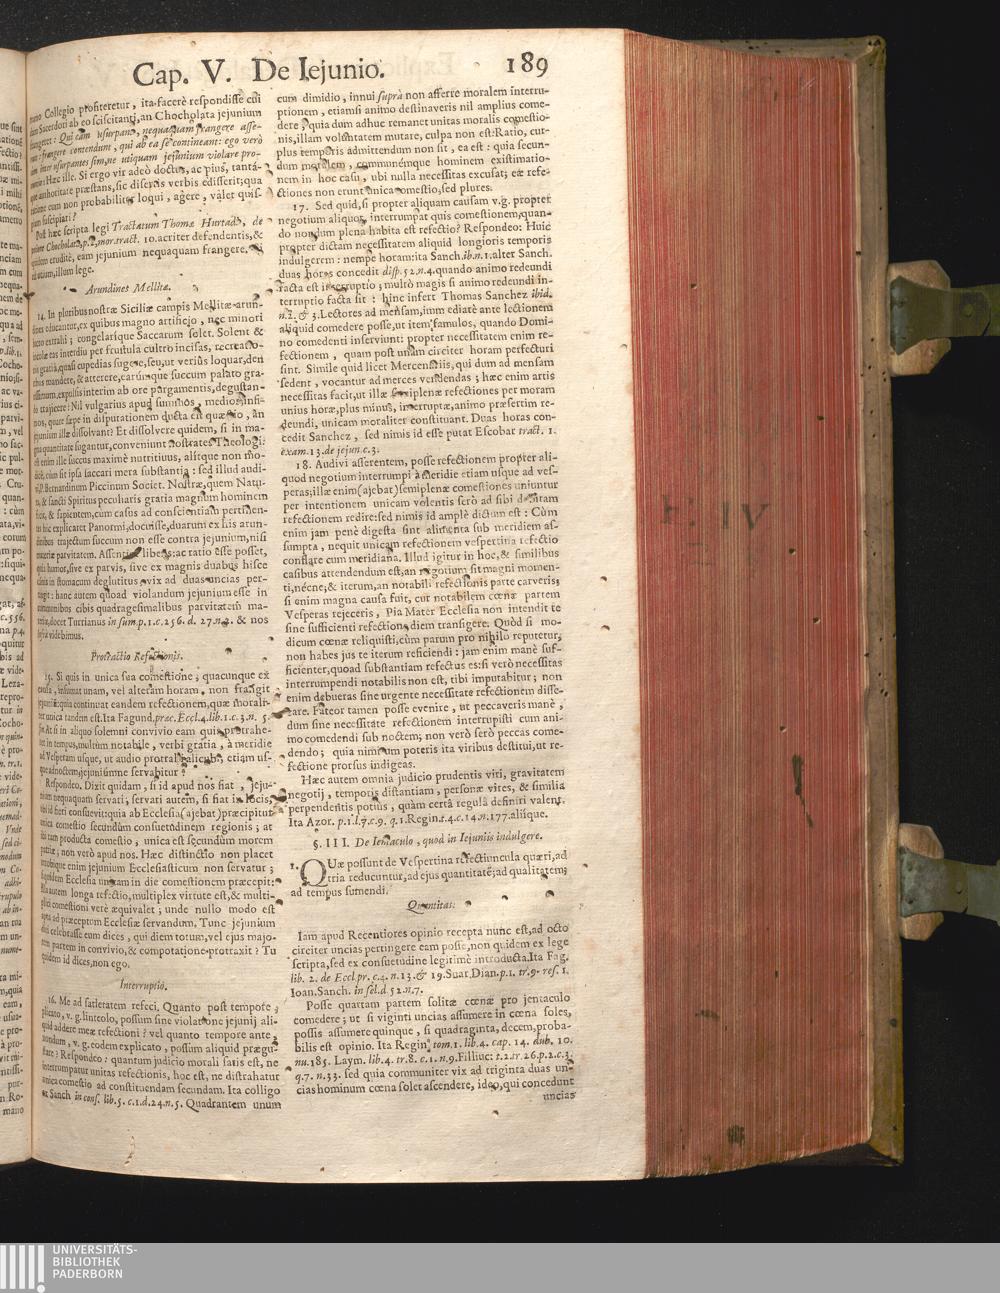 Cap. V. De Iejunio.
189
mano Collegio profiteretur, ita facerè respondisse cui
dam Sacerdoti ab eo sciscitanti, an Chocholata jejunium
frangeret: Qui eam usurpant, nequaquam frangere asse-
frangere contendum, qui ab ea se contineant: ego verò
inter usurpantes sim, ne utiquam jejunium violare pro-
Hæc ille. Si ergo vir adeò doctus, ac pius, tantá-
que authoritate præstans, sic disertis verbis edisserit; qua
ratione cum non probabiliter loqui, agere, valet quis-
quam suscipiari?
Post hæc scripta legi Tractatum Thomæ Hurtado, de
Chocholata, p.2. mor. tract. 10. acriter defendentis, &
quidem eruditè, eam jejunium nequaquam frangere.
illum lege.
Arundines Mellitæ.
14. In pluribus nostræ Siciliæ campis Mellitæ arun-
dines educantur, ex quibus magno artificio, nec minori
lucro extrahi; congelarique Saccarum solet. Solent &
incolæ eas interdiu per frustula cultro incisas, recreatio-
nis gratiâ, quasi cupedias sugere, seu, ut veriùs loquar, den
tibus mandere, & atterere, earúmque succum palato gra-
tissimum, expulsis interim ab ore purgamentis, degustan-
do trajicere: Nil vulgarius apud summos, medios, infi-
mos, quare sæpe in disputationem ducta est quæstio, an
jejunium illæ dissolvant? Et dissolvere quidem, si in ma-
gna quantitate sugantur, conveniunt nostrates Theologi:
est enim ille succus maximè nutritivus, alitque non mo-
dicè, cum sit ipsa saccari mera substantia: sed illud audi-
vi, P. Bernardinum Piccinum Societ. Nostræ, quem Natu-
ra, & sancti Spiritus peculiaris gratia magnum hominem
fecit, & sapientem, cùm casus ad conscientiam pertinen-
tes hic explicaret Panormi, docuisse, duarum ex his arun-
dinibus trajectum succum non esse contra jejunium, nisi
materiæ parvitatem. Assentior libens: ac ratio esse posset,
quia humor, sive ex parvis, sive ex magnis duabus hisce
cannis in stomacum deglutitus vix ad duas uncias per-
tingit: hanc autem quoad violandum jejunium esse in
communibus cibis quadragesimalibus parvitatem ma-
teriæ, docet Turrianus in sum. p. 1. c. 256. d. 27. n. 2. & nos
infrà videbimus.
Protractio Refectionis.
15. Si quis in unica sua comestione, quacunque ex
causa, insumat unam, vel alteram horam, non frangit
jejunium: quia continuat eandem refectionem, quæ morali-
ter unica tandem est. Ita Fagund. præc. Eccl. 4. lib. 1. c. 3. n. 5.
At si in aliquo solemni convivio eam quis protrahe-
ret in tempus, multùm notabile, verbi gratia, à meridie
ad Vesperam usque, ut audio protrahi alicubi, etiam us-
que ad noctem, jejuniúmne servabitur?
Respondeo. Dixit quidam, si id apud nos fiat, jeju-
nium nequaquam servari, servari autem, si fiat in locis,
ubi id fieri consuevit: quia ab Ecclesia (ajebat) præcipitur
unica comestio secundùm consuetudinem regionis; at
ibi tam producta comestio, unica est secundùm morem
patriæ; non verò apud nos. Hæc distinctio non placet
utrobique enim jejunium Ecclesiasticum non servatur;
siquidem Ecclesia unicam in die comestionem præcepit:
illa autem longa refectio, multiplex virtute est, & multi-
plici comestioni verè æquivalet; unde nullo modo est
apta ad præceptum Ecclesiæ servandum. Tunc jejunium
celebrasse eum dices, qui diem totum, vel ejus majo-
rem partem in convivio, & compotatione protraxit? Tu
quidem id dices, non ego.
Interruptio.
16. Me ad satietatem refeci, Quanto post tempore,
plicato, v. g. linteolo, possum sine violatione jejunij ali-
quid addere meæ refectioni? vel quanto tempore ante,
nondum, v. g. eodem explicato, possum aliquid prægu-
stare? Respondeo: quantum judicio morali satis est, ne
interrumpatur unitas refectionis, hoc est, ne distrahatur
unica comestio ad constituendam secundam. Ita colligo
ex Sanch in cons. lib. 5. c. 1. d. 24. n. 5. Quadrantem unum
cum dimidio, innui suprà non afferre moralem interru-
ptionem, etiamsi animo destinaveris nil amplius come-
dere; quia dum adhuc remanet unitas moralis comestio-
nis, illam voluntatem mutare, culpa non est: Ratio, cur
plus temporis admittendum non sit, ea est: quia secun-
dum moralem, communémque hominem existimatio-
nem in hoc casu, ubi nulla necessitas excusat; eæ refe-
ctiones non erunt unica comestio, sed plures.
17. Sed quid, si propter aliquam causam v.g. propter
negotium aliquod, interrumpat quis comestionem, quan-
do nondum plena habita est refectio? Respondeo: Huic
propter dictam necessitatem aliquid longioris temporis
indulgerem: nempe horam: ita Sanch. ib. n. 1. alter Sanch.
duas horas concedit disp. 52. n. 4. quando animo redeundi
facta est interruptio; multò magis si animo redeundi in-
terruptio facta sit: hinc infert Thomas Sanchez ibid.
n. 2. & 3. Lectores ad mensam, immediatè ante lectionem
aliquid comedere posse, ut item famulos, quando Domi-
no comedenti inserviunt: propter necessitatem enim re-
fectionem, quam post unam circiter horam perfecturi
sint. Simile quid licet Mercenariis, qui dum ad mensam
sedent, vocantur ad merces vendendas; hæc enim artis
necessitas facit, ut illæ semiplenæ refectiones per moram
unius horæ, plus minus, interruptæ, animo præsertim re-
deundi, unicam moraliter constituant. Duas horas con-
cedit Sanchez, sed nimis id esse putat Escobar tract. 1.
exam. 13. de jejun. c. 3.
18. Audivi asserentem, posse refectionem propter ali-
quod negotium interrumpi à meridie etiam usque ad ves-
peras; illæ enim (ajebat) semiplenæ comestiones uniuntur
per intentionem unicam volentis serò ad sibi debitam
refectionem redire: sed nimis id amplè dictum est: Cùm
enim jam penè digesta sint alimenta sub meridiem as-
sumpta, nequit unicam refectionem vespertina refectio
conflare cum meridiana. Illud igitur in hoc, & similibus
casibus attendendum est, an negotium sit magni momen-
ti, nécne; & iterum, an notabili refectionis parte carveris;
si enim magna causa fuit, cur notabilem cœnæ partem
Vesperas rejeceris, Pia Mater Ecclesia non intendit te
sine sufficienti refectione diem transigere. Quòd si mo-
dicum cœnæ reliquisti, cùm parum pro nihilo reputetur,
non habes jus te iterum reficiendi: jam enim manè suf-
ficienter, quoad substantiam refectus es: si verò necessitas
interrumpendi notabilis non est, tibi imputabitur; non
enim debueras sine urgente necessitate refectionem disse-
care. Fateor tamen posse evenire, ut peccaveris manè,
dum sine necessitate refectionem interrupisti cum ani-
mo comedendi sub noctem; non verò serò peccas come-
dendo; quia nimium poteris ita viribus destitui, ut re-
fectione prorsus indigeas.
Hæc autem omnia judicio prudentis viri, gravitatem
negotij, temporis distantiam, personæ vires, & similia
perpendentis potius, quàm certâ regulâ definiri valent.
Ita Azor. p. 1. l. 7. c. 9. q. 1. Regin. t. 4. c. 14. n. 177. aliique.
§. III. De Ientaculo, quod in Iejuniis indulgere.
1. QUæ possunt de Vespertina refectiuncula quæri, ad
tria reducuntur, ad ejus quantitatē; ad qualitatem;
ad tempus sumendi.
Quantitas.
Iam apud Recentiores opinio recepta nunc est, ad octo
circiter uncias pertingere eam posse, non quidem ex lege
scripta, sed ex consuetudine legitimè introducta. Ita Fag.
lib. 2. de Eccl. pr. c. 4. n. 13. & 19. Suar. Dian. p. 1. tr. 9. res. 1.
Ioan. Sanch. in sel. d. 52. n. 7.
Posse quartam partem solitæ cœnæ pro jentaculo
comedere; ut si viginti uncias assumere in cœna soles,
possis assumere quinque, si quadraginta, decem, proba-
bilis est opinio. Ita Regin. tom. 1. lib. 4. cap. 14. dub. 10.
nu. 185. Laym. lib. 4. tr. 8. c. 1. n. 9. Filliuc: t. 2. tr. 26. p. 2. c. 3.
q. 7. n. 33. sed quia communiter vix ad triginta duas un-
cias hominum cœna solet ascendere, ideo, qui concedunt
uncias
UNIVERSITÄTS-
BIBLIOTHEK
PADERBORN